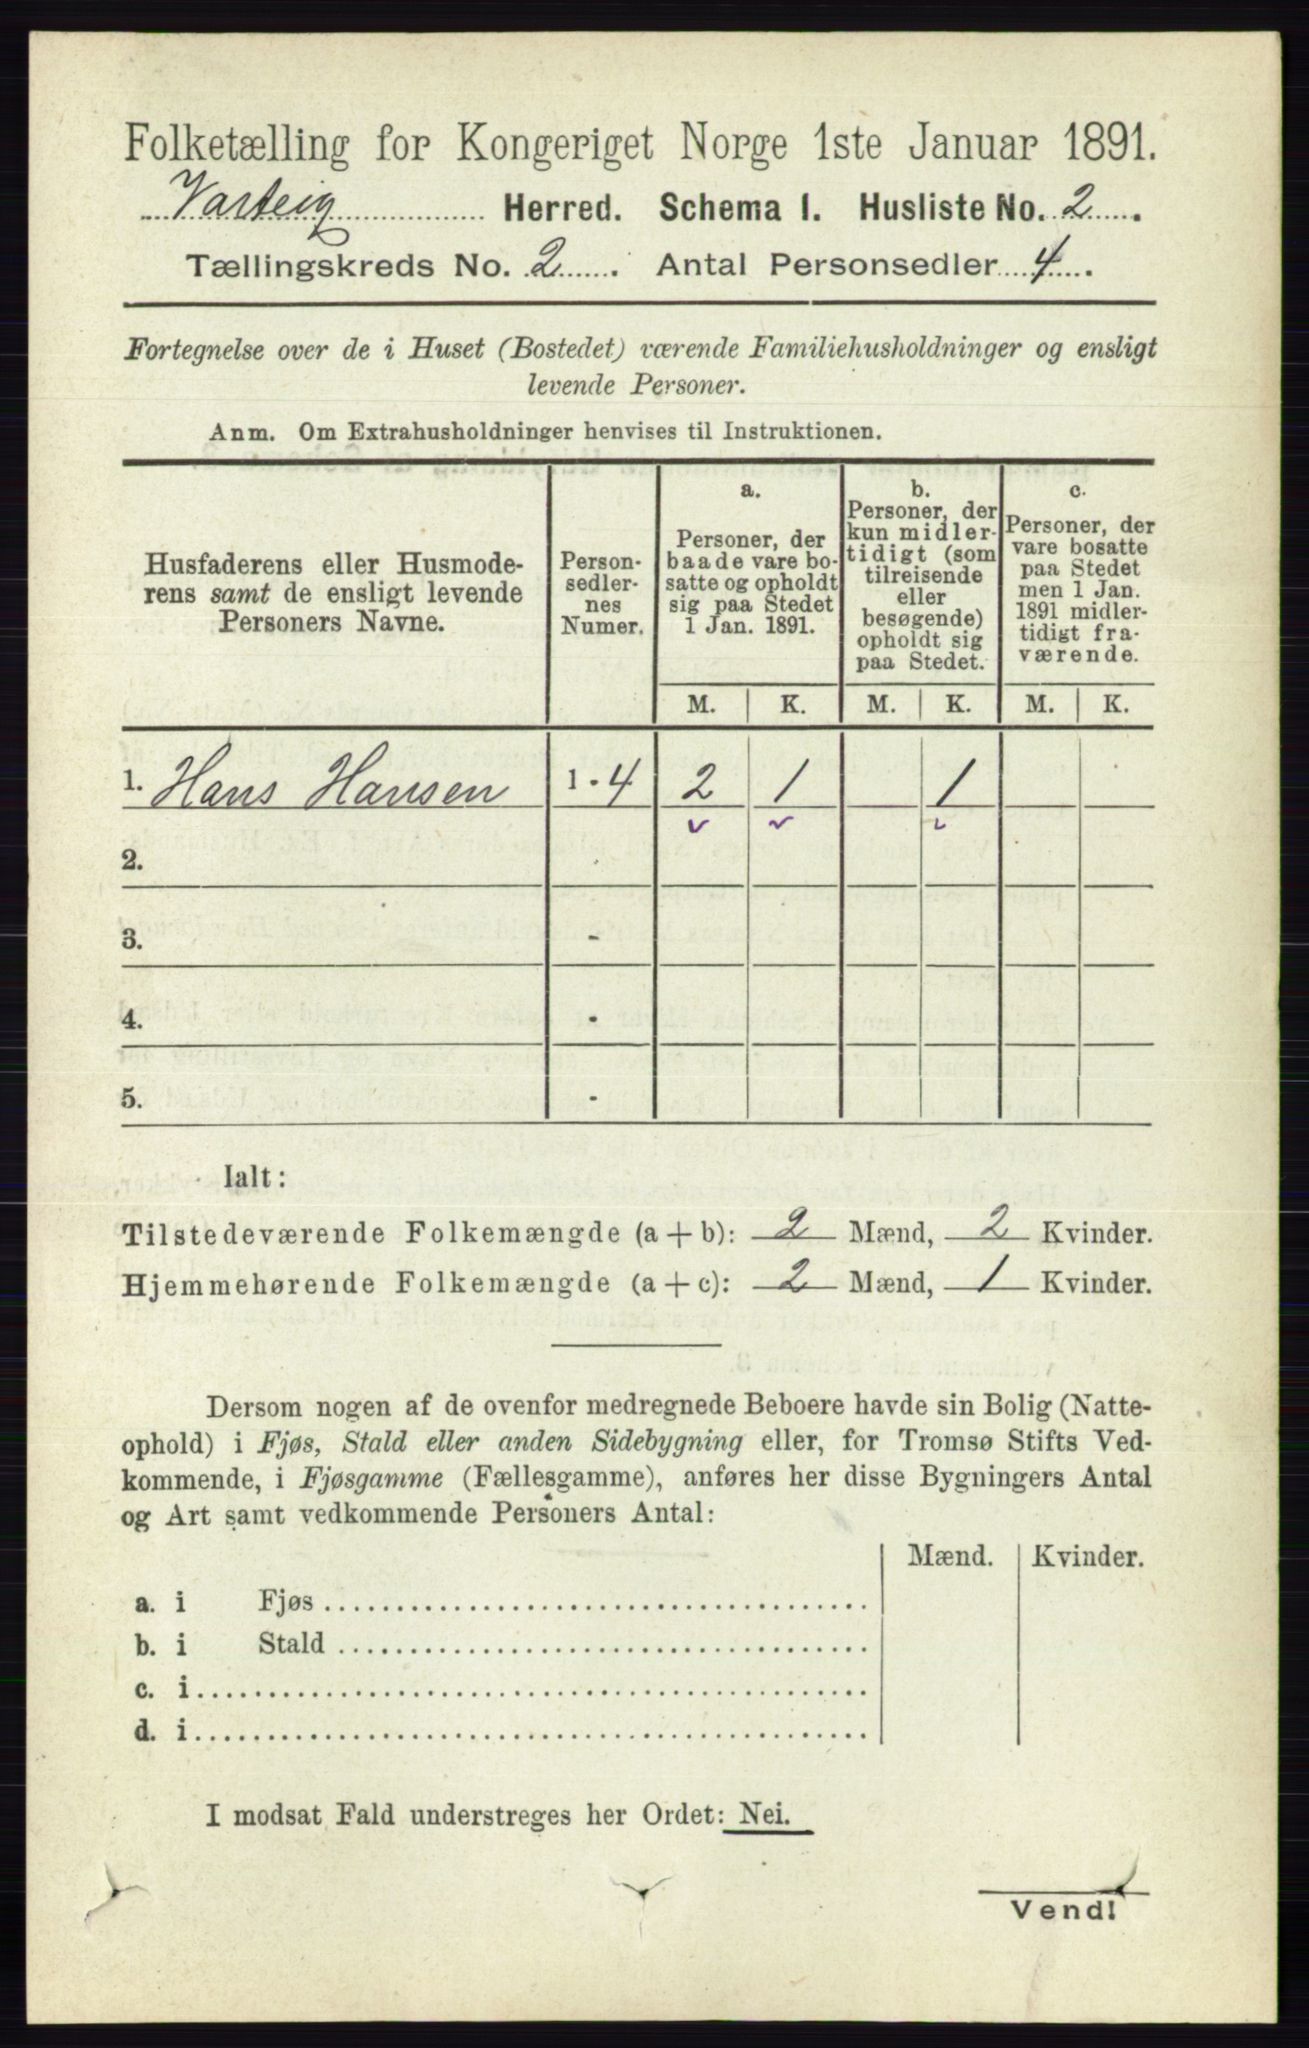 Folketælling for Kongeriget Norge 1ste Januar 1891.
Varteig Herred. Schema I. Husliste No. 2.
Tællingskreds No. 2. Antal Personsedler 4.
Fortegnelse over de i Huset (Bostedet) værende Familiehusholdninger og ensligt
levende Personer.
Anm. Om Extrahusholdninger henvises til Instruktionen.
Husfaderens eller Husmode-
rens samt de ensligt levende
Personers Navne.
Person-
sedler-
nes
Numer.
a.
Personer, der
baade vare bo-
satte og opholdt
sig paa Stedet
1 Jan. 1891.
b.
Personer, der
kun midler-
tidigt (som
tilreisende
eller
besøgende)
opholdt sig
paa Stedet.
c.
Personer, der
vare bosatte
paa Stedet
men 1 Jan.
1891 midler-
tidigt fra-
værende.
M. K. M. K. M. K.
1. Hans Hansen 1 - 4 2 1 1
2. -
3. -
4. -
5. -
Ialt:
Tilstedeværende Folkemængde (a + b): 2 Mænd, 2 Kvinder.
Hjemmehørende Folkemængde (a + c): 2 Mænd, 1 Kvinder.
Dersom nogen af de ovenfor medregnede Beboere havde sin Bolig (Natte-
ophold) i Fjøs, Stald eller anden Sidebygning eller, for Tromsø Stifts Ved-
kommende, i Fjøsgamme (Fællesgamme), anføres her disse Bygningers Antal
og Art samt vedkommende Personers Antal:
Mænd. Kvinder.
a. i Fjøs
b. i Stald
c. i
d. i
I modsat Fald understreges her Ordet: Nei.
Vend!